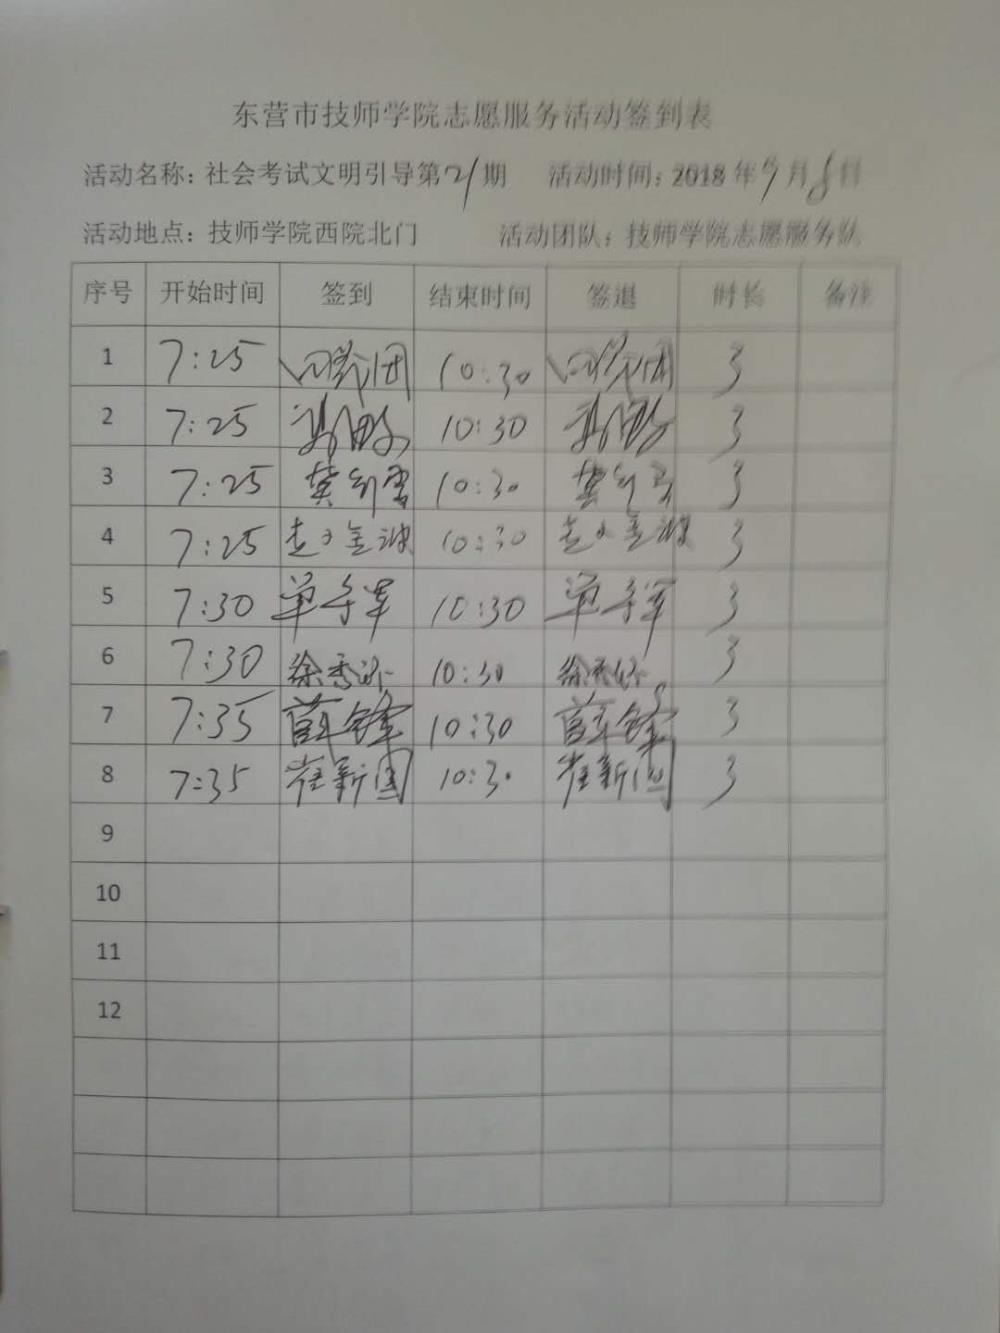 东营市技师学院志愿服务活动签到表
活动名称：社会考试文明引导第21期 活动时间：2018年9月8日
活动地点：技师学院西院北门 活动团队：技师学院志愿服务队
序号 开始时间 签到 结束时间 签退 时长 备注
1 7:25 10:30 3
2 7:25 10:30 3
3 7:25 10:30 3
4 7:25 10:30 3
5 7:30 10:30 3
6 7:30 10:30 3
7 7:35 薛锋 10:30 薛锋 3
8 7:35 崔新国 10:30 崔新国 3
9
10
11
12